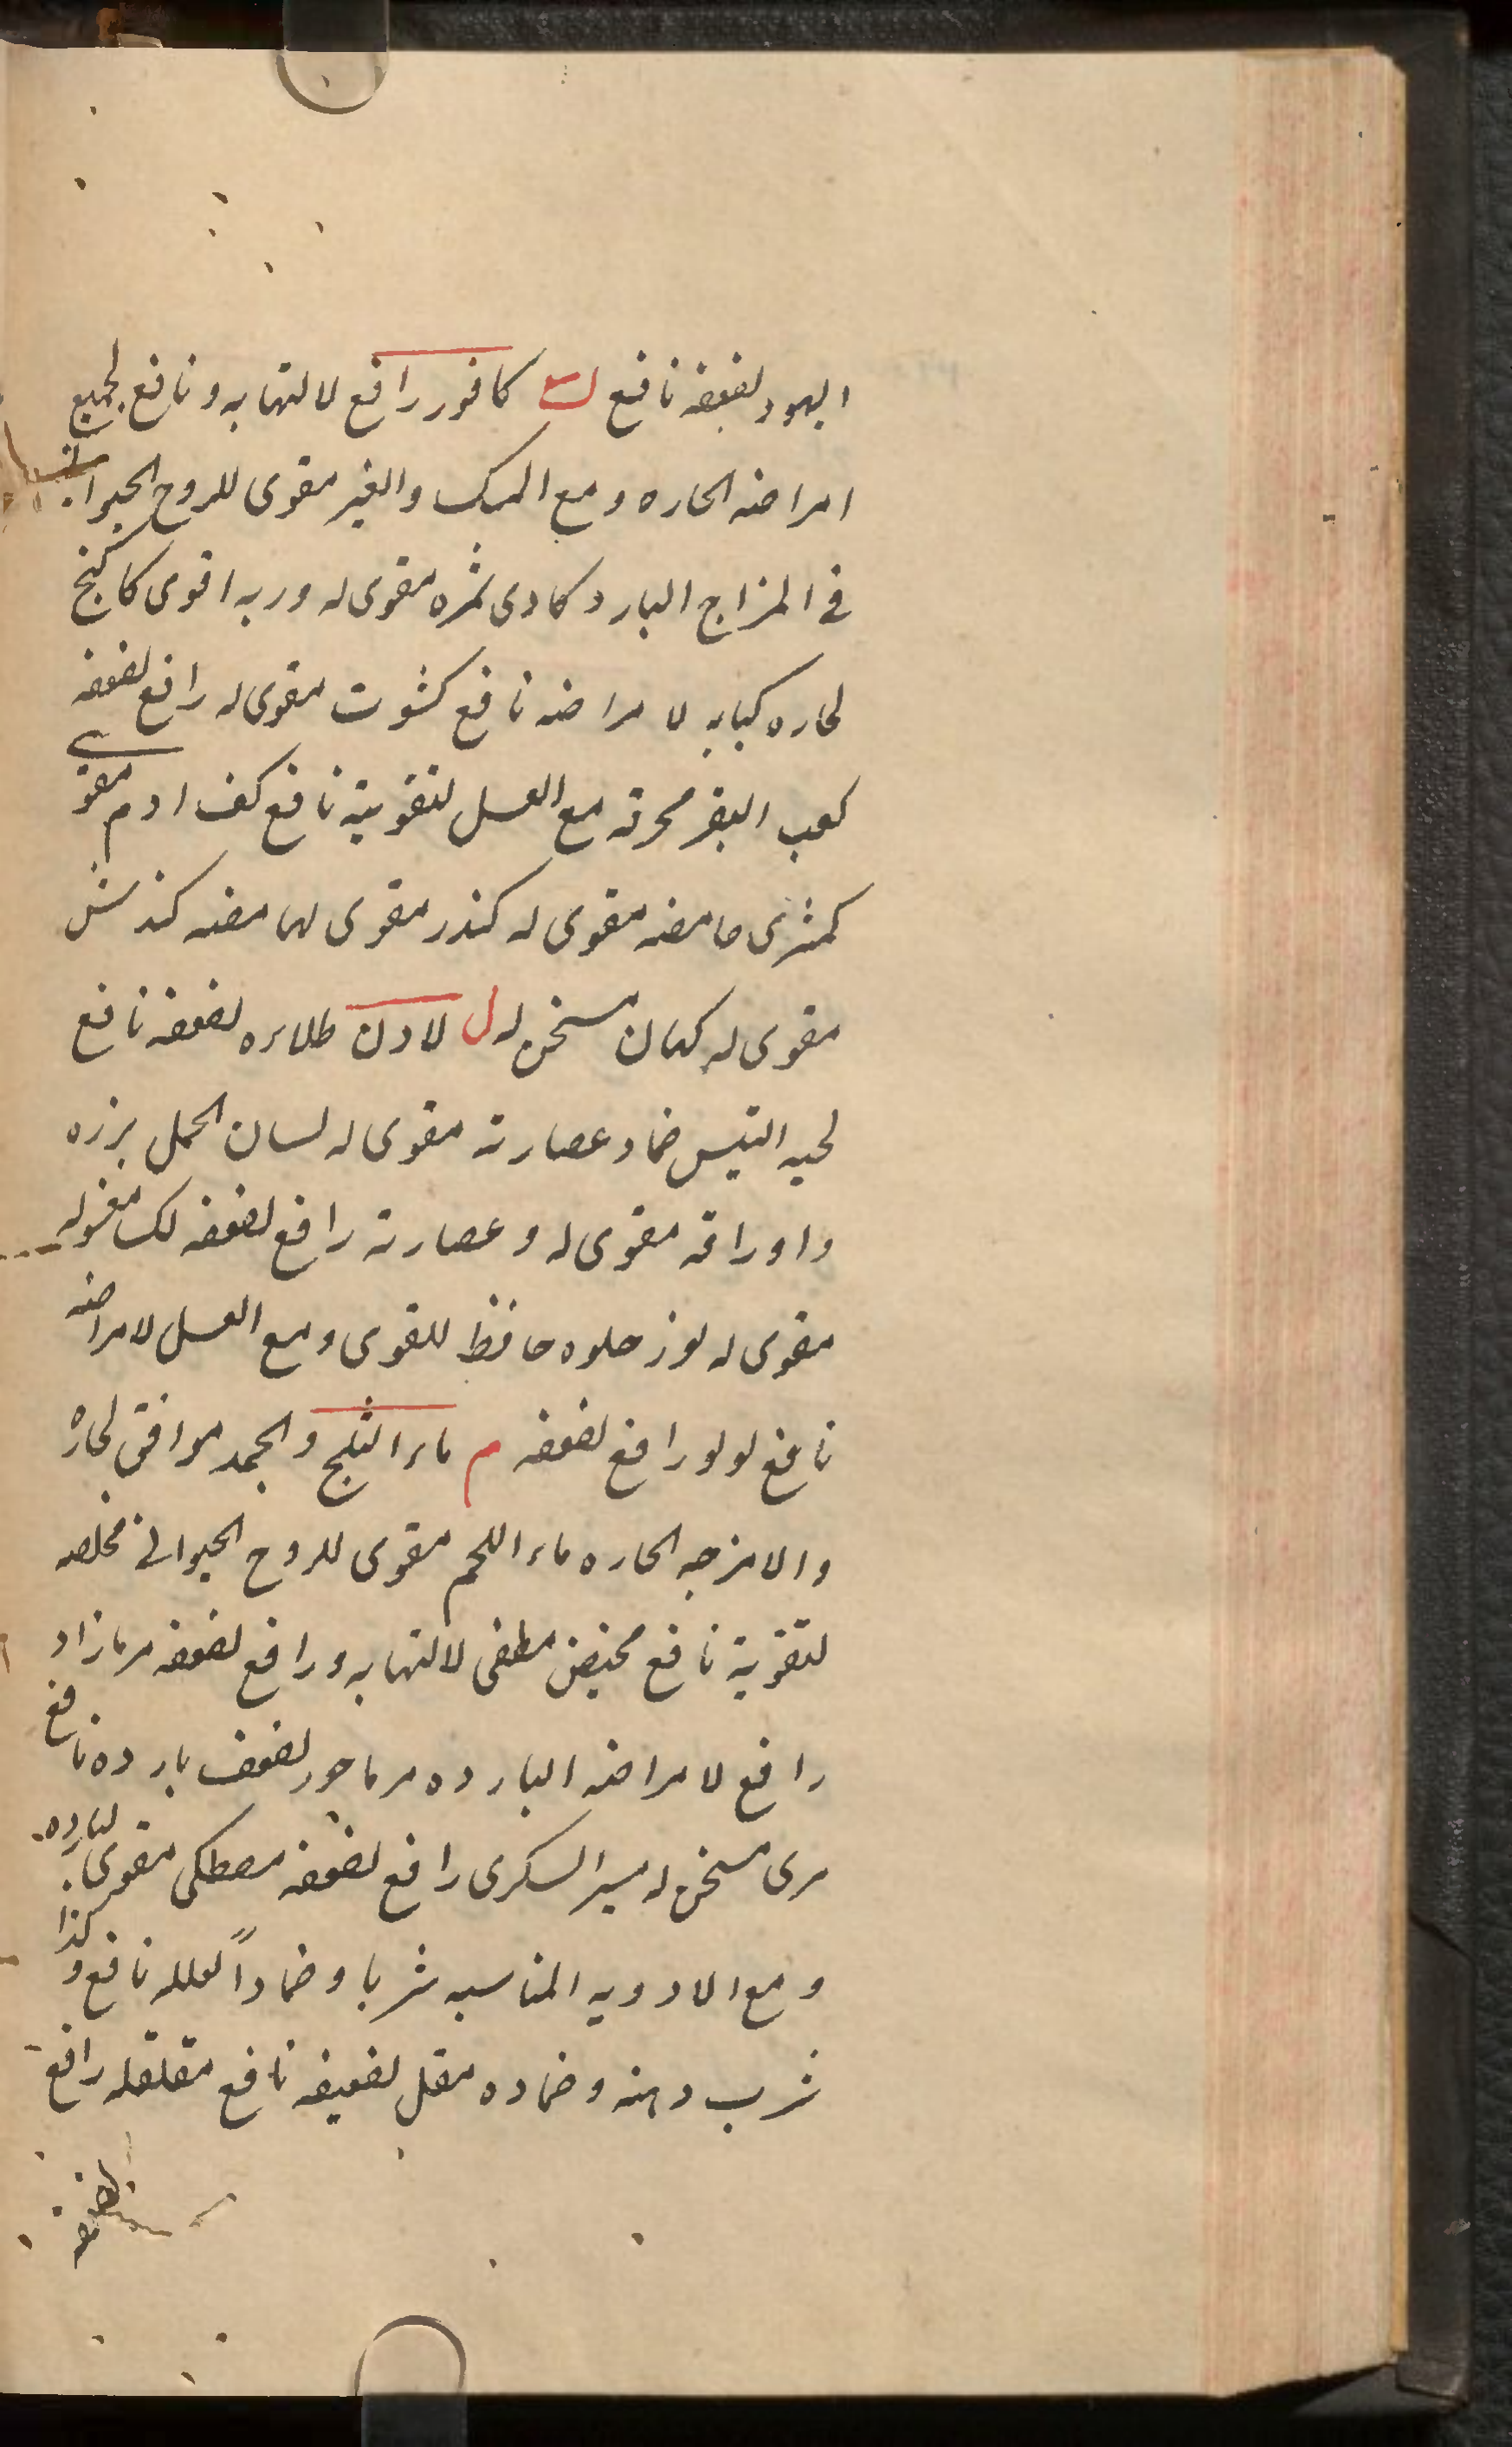 اليهود لضعفه نافع ك كافور رافع لالتهابه و نافع لجميع
امراضه الحاره و مع المسک والعنبر مقوی للروح الحیوانی
فی المزاج البارد کادی ثمره مقوی له و ربه اقوی کاکنج
لحاره کبابه لامراضه نافع کشوت مقوی له رافع لضعفه
کعب البقر محرقه مع العسل لتقویته نافع کف ادم مقوی
کمثری حامضه مقوی له کندر مقوی له کندش
مقوی له کهان مسخن له ل لادن طلاءه لضعفه نافع
لحیه التیس ضماد عصارته مقوی له لسان الحمل بزره
و اوراقه مقوی له و عصارته رافع لضعفه لک مغسوله
مقوی له لوز حلوه حافظ للقوی و مع العسل لامراضه
نافع لولو رافع لضعفه م ماء الثلج و الجمد موافق لحاره
والامزجه الحاره ماء اللحم مقوی للروح الحیوانی مخلصه
لتقویته نافع مخیض مطفی لالتهابه و رافع لضعفه مرمازاد
رافع لامراضه البارده مرماحور لضعف بارده نافع
مری مسخن له میبر السکری رافع لضعفه مصطکی مقوی لبارده
و مع الادویه المناسبه شربا و ضماداً لعلله نافع و کذا
شرب دهنه و ضماده مقل لضعیفه نافع مقلقله رافع
لضعفه